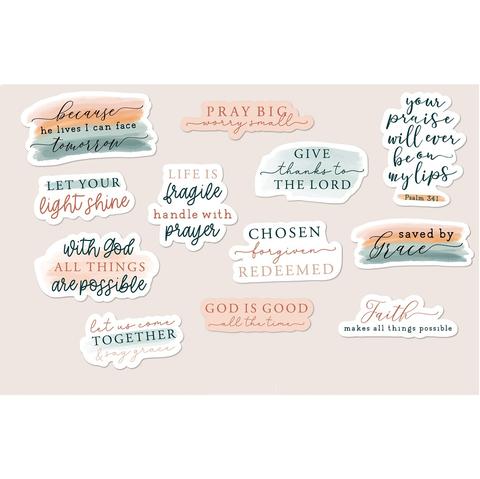 because
he lives I can face
tomorrow
PRAY BIG
worry small
your
praise
will ever
be on
my lips
Psalm 34:1
LET YOUR
light shine
LIFE IS
fragile
handle with
prayer
GIVE
thanks to
THE LORD
with God
ALL THINGS
are possible
CHOSEN
forgiven
REDEEMED
saved by
Grace
let us come
TOGETHER
& say grace
GOD IS GOOD
all the time
Faith
makes all things possible